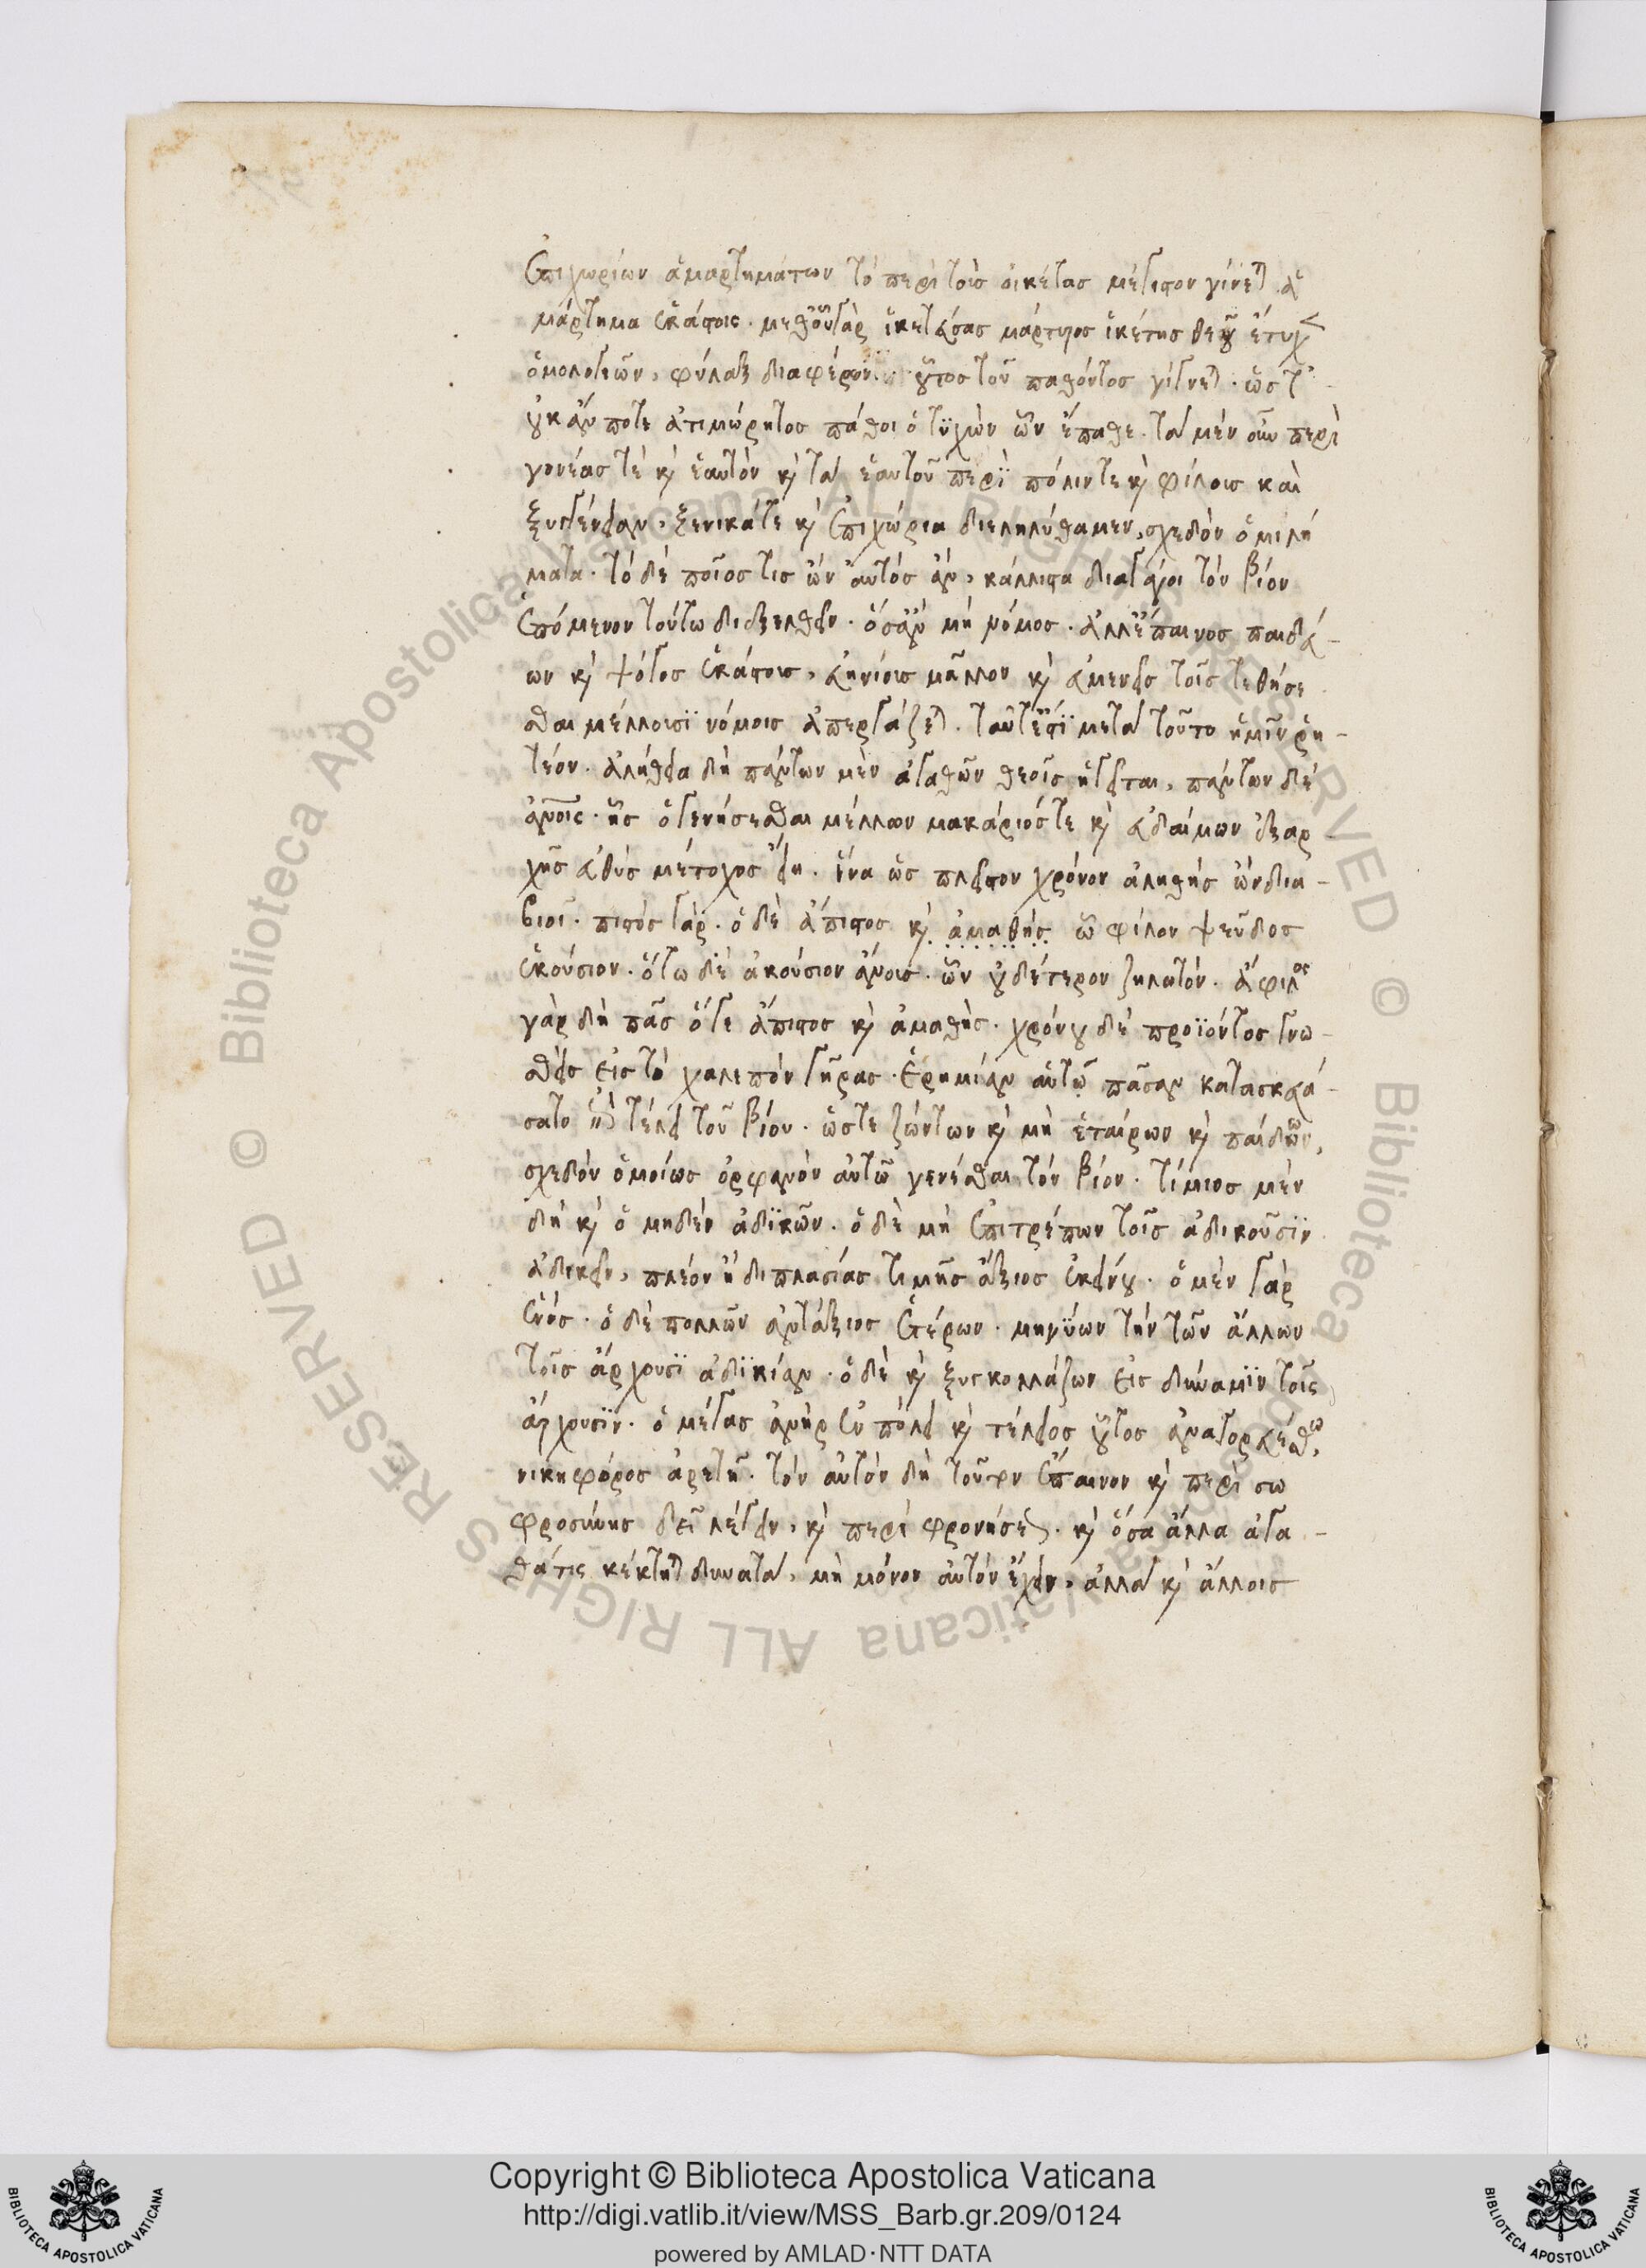 ἐπιχωρίων ἁμαρτημάτων τὸ περὶ τοὺς οἰκέτας μέγιστον γίνεται ἁ
μάρτημα ἑκάστοις. μεθ' οὗ γὰρ ἱκετεύσας μάρτυρος ἱκέτης θεοῦ ἔτυχεν
ὁμολογιῶν, φύλαξ διαφέρων οὗτος τοῦ παθόντος γίγνεται. ὥστ'
οὐκ ἄν ποτε ἀτιμώρητος πάθοι ὁ τυχὼν ὧν ἔπαθε. τὰ μὲν οὖν περὶ
γονέας τὲ καὶ ἑαυτὸν καὶ τὰ ἑαυτοῦ περὶ πόλιν τε καὶ φίλοις καὶ
ξυγγένειαν, ξενικά τε καὶ ἐπιχώρια διεληλύθαμεν, σχεδὸν ὁμιλή
ματα. τὸ δὲ ποῖος τις ὢν αὐτὸς ἂν, κάλλιστα διαγάγοι τὸν βίον
ἑπόμενον τούτω διεξελθεῖν. ὅσ' ἂν μὴ νόμος. ἀλλ' ἔπαινος παιδεύ-
ων καὶ ψόγος ἑκάστοις, εὐηνίοις μᾶλλον καὶ εὐμενεῖς τοῖς τεθήσε
σθαι μέλλουσϊ νόμοις ἀπεργάζεται. ταῦτ' ἐστϊ μετὰ τοῦτο ἡμῖν ῥη-
τέον. ἀλήθεια δὴ πάντων μὲν ἀγαθῶν θεοῖς ἡγεῖται, πάντων δὲ
ἀνοις. ἧς ὁ γενήσεσθαι μέλλων μακάριός τε καὶ εὐδαίμων ἐξαρ-
χῆς εὐθὺς μέτοχος εἴη. ἵνα ὡς πλεῖστον χρόνον ἀληθὴς ὢν δια-
βιοῖ. πιστὸς γάρ. ὁ δὲ ἄπιστος καὶ ἀμαθής ὧ φίλον ψεῦδος
ἑκούσιον. ὅτω δὲ ἀκούσιον ἄνοις. ὧν οὐδέτερον ζηλωτόν. ἄφιλος
γὰρ δὴ πᾶς ὅ γε ἄπιστος καὶ ἀμαθής. χρόνου δὲ προϊόντος γνω-
σθεὶς εἰς τὸ χαλεπὸν γῆρας. ἐρημίαν αὑτῷ πᾶσαν κατασκευά-
σατο ἐπὶ τέλει τοῦ βίου. ὥστε ζώντων καὶ μὴ ἑταίρων καὶ παίδων,
σχεδὸν ὁμοίως ὀρφανὸν αὐτῶ γενέσθαι τὸν βίον. τίμιος μὲν
δὴ καὶ ὁ μηδὲν ἀδϊκῶν. ὁ δὲ μὴ ἐπιτρέπων τοῖς ἀδικοῦσϊν
ἀδικεῖν, πλέον ἢ διπλασίας τιμῆς ἄξιος ἐκείνου. ὁ μὲν γὰρ
ἑνός. ὁ δὲ πολλῶν ἀντάξιος ἑτέρων. μηνΰων τὴν τῶν ἄλλων
τοῖς ἄρχουσϊ ἀδϊκίαν. ὁ δὲ καὶ ξυγκολλάζων εἰς δύναμϊν τοῖς
ἄρχουσϊν. ὁ μέγας ἀνὴρ ἐν πόλει καὶ τέλειος οὗτος ἀναγορευέσθω,
νικηφόρος ἀρετῇ. τὸν αὐτὸν δὴ τοῦτον ἔπαινον καὶ περὶ σω
φροσύνης δεῖ λέγειν, καὶ περὶ φρονήσεως. καὶ ὅσα ἄλλα ἀγα-
θά τις κέκτηται δυνατὰ, μὴ μόνον αὐτὸν ἔχειν, ἀλλὰ καὶ ἄλλοις
Copyright © Biblioteca Apostolica Vaticana
http://digi.vatlib.it/view/MSS_Barb.gr.209/0124
powered by AMLAD·NTT DATA